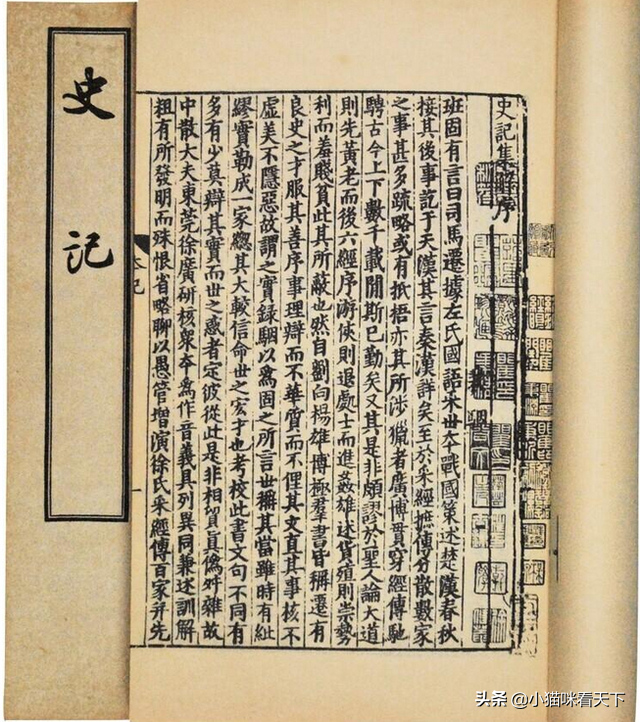 史記集解序
班固有言曰司馬遷據左氏國語采世本戰國策述楚漢春秋
接其後事訖于天漢其言秦漢詳矣至於采經摭傳分散數家
之事甚多疏略或有抵梧亦其所涉獵者廣博貫穿經傳馳
騁古今上下數千載閒斯已勤矣又其是非頗謬於聖人論大道
則先黃老而後六經序游俠則退處士而進姦雄述貨殖則崇勢
利而羞賤貧此其所蔽也然自劉向楊雄博極羣書皆稱遷有
良史之才服其善序事理辯而不華質而不俚其文直其事核不
虛美不隱惡故謂之實録駰以爲固之所言世稱其當雖時有紕
繆實勒成一家緫其大較信命世之宏才也考校此書文句不同有
多有少莫辯其實而世之惑者定彼從此是非相貿眞僞舛雜故
中散大夫東莞徐廣研核衆本爲作音義具列異同兼述訓解
粗有所發明而殊恨省略聊以愚管增演徐氏采經傳百家并先
一
史記
头条 @小猫咪看天下